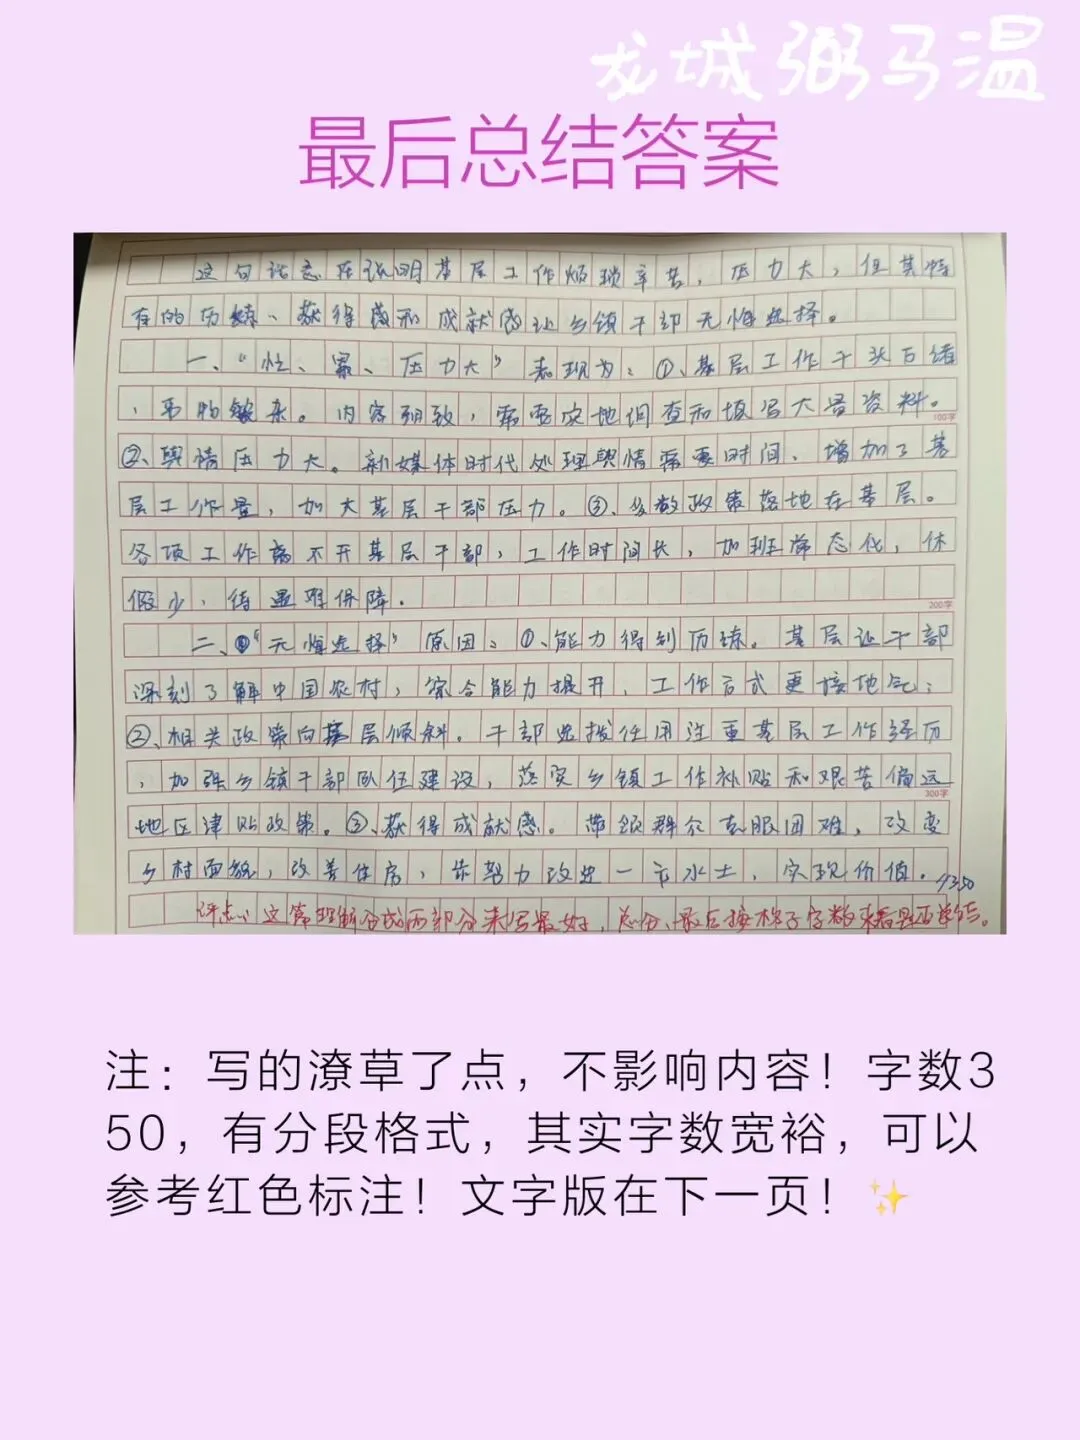 龙城弼马温
最后总结答案
这句话意在说明基层工作烦琐辛苦,压力大,但其特
有的历练、获得感和成就感让乡镇干部无悔选择。
一、“忙、累、压力大”表现为:①、基层工作千头万绪
,事物繁杂。内容细致,需要实地调查和填写大量资料。
100字
②、舆情压力大。新媒体时代处理舆情需要时间,增加了基
层工作量,加大基层干部压力。③、多数政策落地在基层。
各项工作离不开基层干部,工作时间长,加班常态化,休
假少,待遇难保障.
200字
二、“无悔选择”原因:①、能力得到历练。基层让干部
深刻了解中国农村,综合能力提升,工作方式更接地气;
②、相关政策向基层倾斜.干部选拔任用注重基层工作经历
,加强乡镇干部队伍建设,落实乡镇工作补贴和艰苦偏远
300字
地区津贴政策。③、获得成就感。带领群众克服困难,改变
乡村面貌,改善住房,靠努力改造一方水土,实现价值.
350
评点:这篇理解分成两部分来写最好,总分、最后按格子字数来看是否总结。
注:写的潦草了点,不影响内容!字数3
50,有分段格式,其实字数宽裕,可以
参考红色标注!文字版在下一页!✨